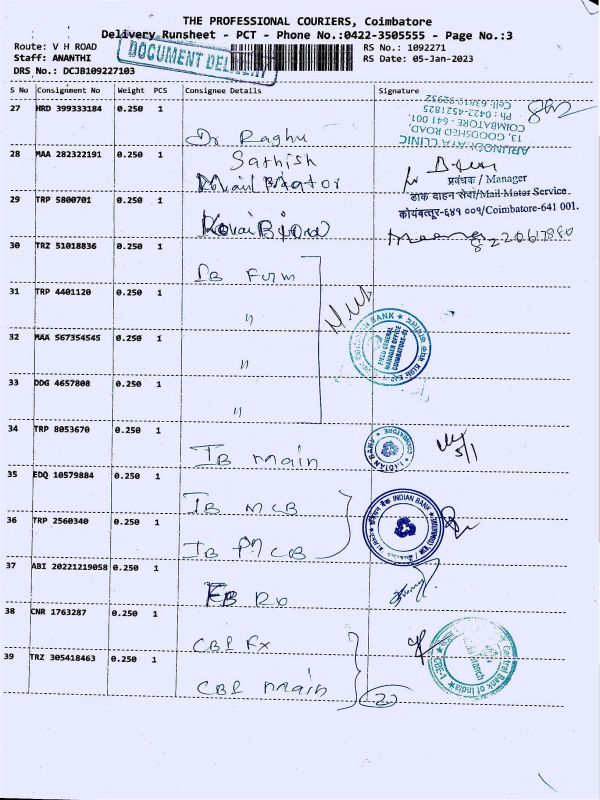 THE PROFESSIONAL COURIERS, Coimbatore
Delivery Runsheet - PCT - Phone No.:0422-3505555 - Page No.:3
Route: V H ROAD RS No.: 1092271
Staff: ANANTHI RS Date: 05-Jan-2023
DRS No.: DCJB109227103
DOCUMENT
S No Consignment No Weight PCS Consignee Details Signature
27 HRD 399333184 0.250 1 Dr Raghu
ARUNODHAYA CLINIC
13, GOODSHED ROAD,
COIMBATORE - 641 001.
Ph : 0422-4521825
28 MAA 282322191 0.250 1 Sathish
प्रबंधक / Manager
डाक वाहन सेवा/Mail Motor Service.
कोयंबत्तूर-६४१ ००१/Coimbatore-641 001.
29 TRP 5800701 0.250 1
30 TRZ 51018836 0.250 1 IB
31 TRP 4401120 0.250 1 "
32 MAA 567354545 0.250 1 "
FIELD GENERAL
MANAGER OFFICE
33 DDG 4657808 0.250 1 "
34 TRP 8053670 0.250 1 IB main
INDIAN BANK
5/1
35 EDQ 10579884 0.250 1 IB MCB
INDIAN BANK
36 TRP 2560340 0.250 1 IB
37 ABI 20221219058 0.250 1
38 CNR 1763287 0.250 1 CBI Fx
Central Bank of India
39 TRZ 305418463 0.250 1 CBI main